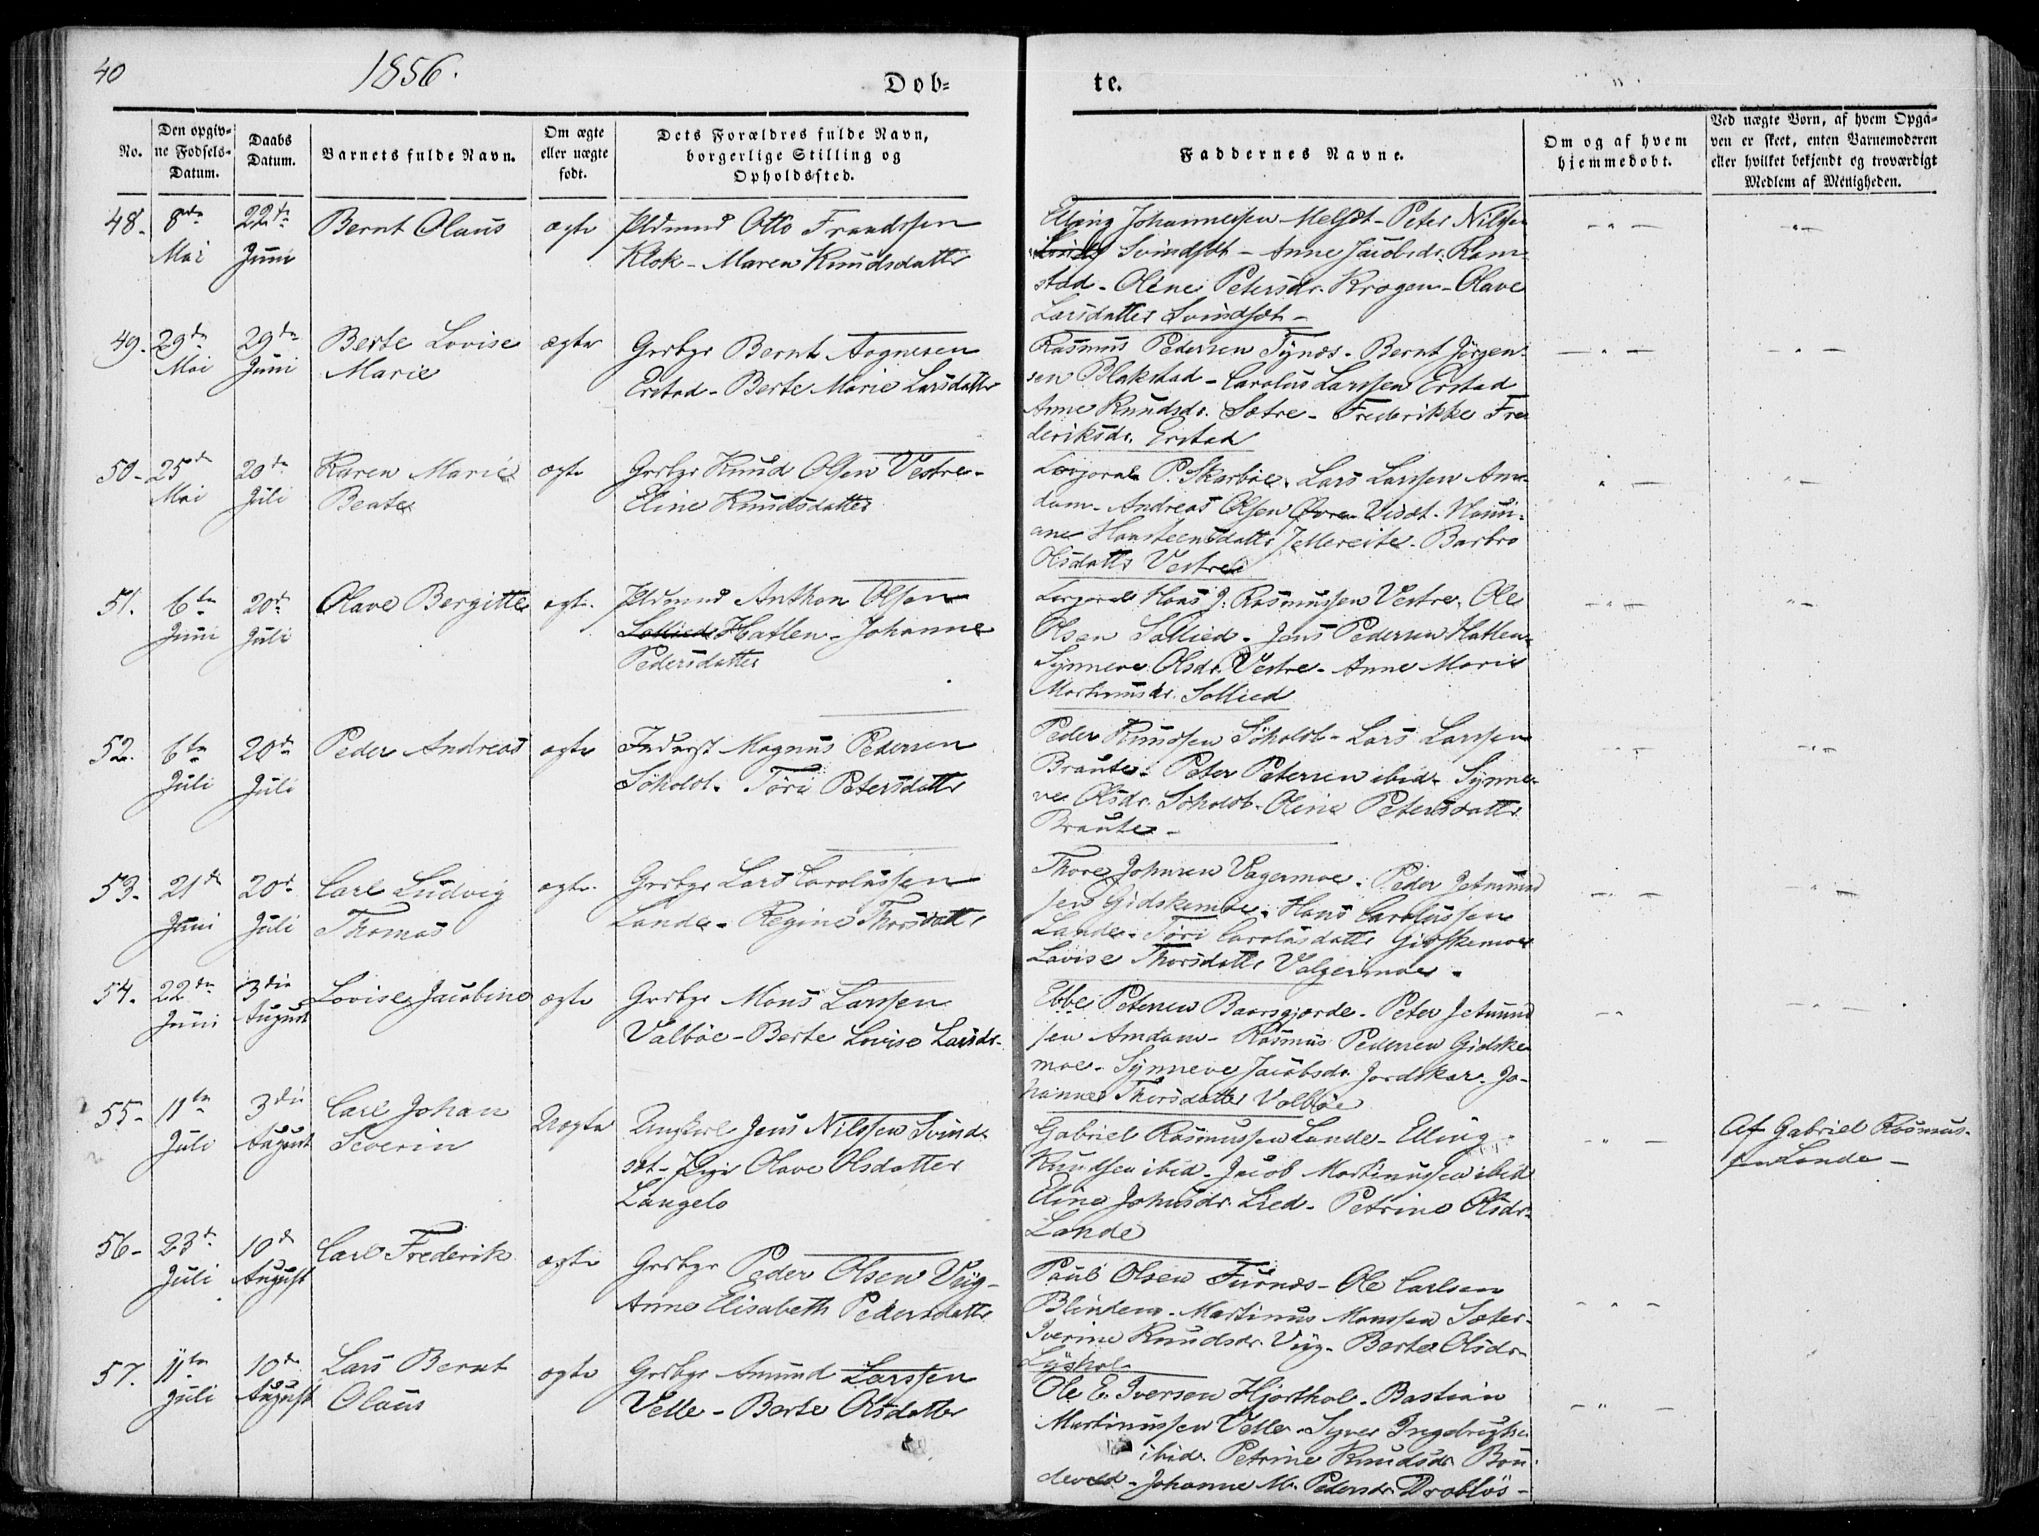 40
1856.
Døb=
te.
No.
Den opgiv=
ne Fødsels=
Datum.
Daabs
Datum.
Barnets fulde Navn.
Om ægte
eller uægte
født.
Dets Forældres fulde Navn,
borgerlige Stilling og
Opholdssted.
Faddernes Navne.
Om og af hvem
hjemmedøbt.
Ved uægte Børn, af hvem Opga=
ven er skeet, enten Barnemoderen
eller hvilket bekjendt og troværdigt
Medlem af Menigheden.
48.
8de
Mai
22de
Juni
Bernt Olaus
ægte
Pldmnd Otto Frandssen
Klok - Maren Knudsdatter
Elling Johannessen Melset - Peter Nilsen
Svindset - Anne Jacobsdr. Ram-
stad - Oline Petersdr. Krogen - Olave
Larsdatter Svindset -
49.
29de
Mai
29de
Juni
Berte Lovise
Marie
ægte
Grdbgr Bernt Aagnesen
Erstad - Berte Marie Larsdatter
Rasmus Pedersen Tynæs - Bernt Jörgen-
sen Blakstad - Carolus Larssen Erstad
Anne Knudsdr. Sætre - Frederikke Fre
deriksdr. Erstad
50 -
25de
Mai
20de
Juli
Karen Marie
Beate
ægte
Grdbgr Knud Olsen Vestre -
Eline Knudsdatter
P. Skarböe - Lars Larssen Am-
dam - Andreas Olsen Øvre Visdt -
ane Hansteensdatter Jellereite - Barbro
Olsdatter Vestre
51.
6te
Juni
20de
Juli
Olave Bergitte
ægte.
Pldmnd Anthon Olsen
Sollied Hatlen - Johanne
Pedersdatter
Hans J. Rasmussen Vestre - Ole
Olsen Sollied - Jens Pedersen Hatlen
Synneve Olsdr. Vestre - Anne Marie
Martinusdr. Sollied
52.
6te
Juli
20de
Juli
Peder Andreas
ægte
Inderst Magnus Pedersen
Söholdt - Töre Petersdatter
Peder Knudsen Söholdt - Lars Larssen
Braute - Peter Petersen ibid - Synne-
ve Olsdr. Söholdt - Oline Petersdatter
Braute -
53.
21de
Juni
20de
Juli
Carl Ludvig
Thomas
ægte.
Grdbgr Lars Carolussen
Lande - Regine Thorsdatter
Thore Johnsen Vagermoe - Peder Jetmund
sen Gidskemoe - Hans Carolussen
Lande - Töri Carolusdatter Gidskemoe
Lovise Thorsdatter Valgermoe -
54.
22de
Juni
3die
August
Lovise Jacobine
ægte
Grdbgr Mons Larssen
Valböe - Berte Lovise Larsdr.
Ebbe Petersen Baarsgjærde - Peter Jetmund
sen Amdam - Rasmus Pedersen Gidske
moe - Synneve Jacobsdr. Jordskar - Jo-
hanne Thorsdatter Valböe
55 -
11te
Juli
3die
August
Carl Johan
Severin
Uægte
Ungkarl Jens Nilssen Svind-
set - Pige Olave Olsdatter
Langelo
Gabriel Rasmussen Lande - Elling
Knudsen ibid - Jacob Martinussen ibid
Eline Johnsdr. Lied - Petrine Olsdr.
Lande
Af Gabriel Rasmus-
sen Lande -
56 -
23de
Juli
10de
August
Carl Frederik
ægte
Grdbgr Peder Olsen Viig -
Anne Elisabeth Pedersdatter
Paul Olsen Furnæs - Ole Carlsen
Blindem - Martinus Monssen Sæter -
Iverine Knudsdr. Viig - Berte Olsdr.
57.
11te
Juli
10de
August
Lars Bernt
Olaus
ægte
Grdbgr Amund Larssen
Velle - Berte Olsdatter
Ole E. Iversen Hjorthol - Bastian
Martinussen Velle - Syver Ingebrigtsen
ibid - Petrine Knudsdr. Bon
devold - Johanne M. Pedersdr. Drablös -